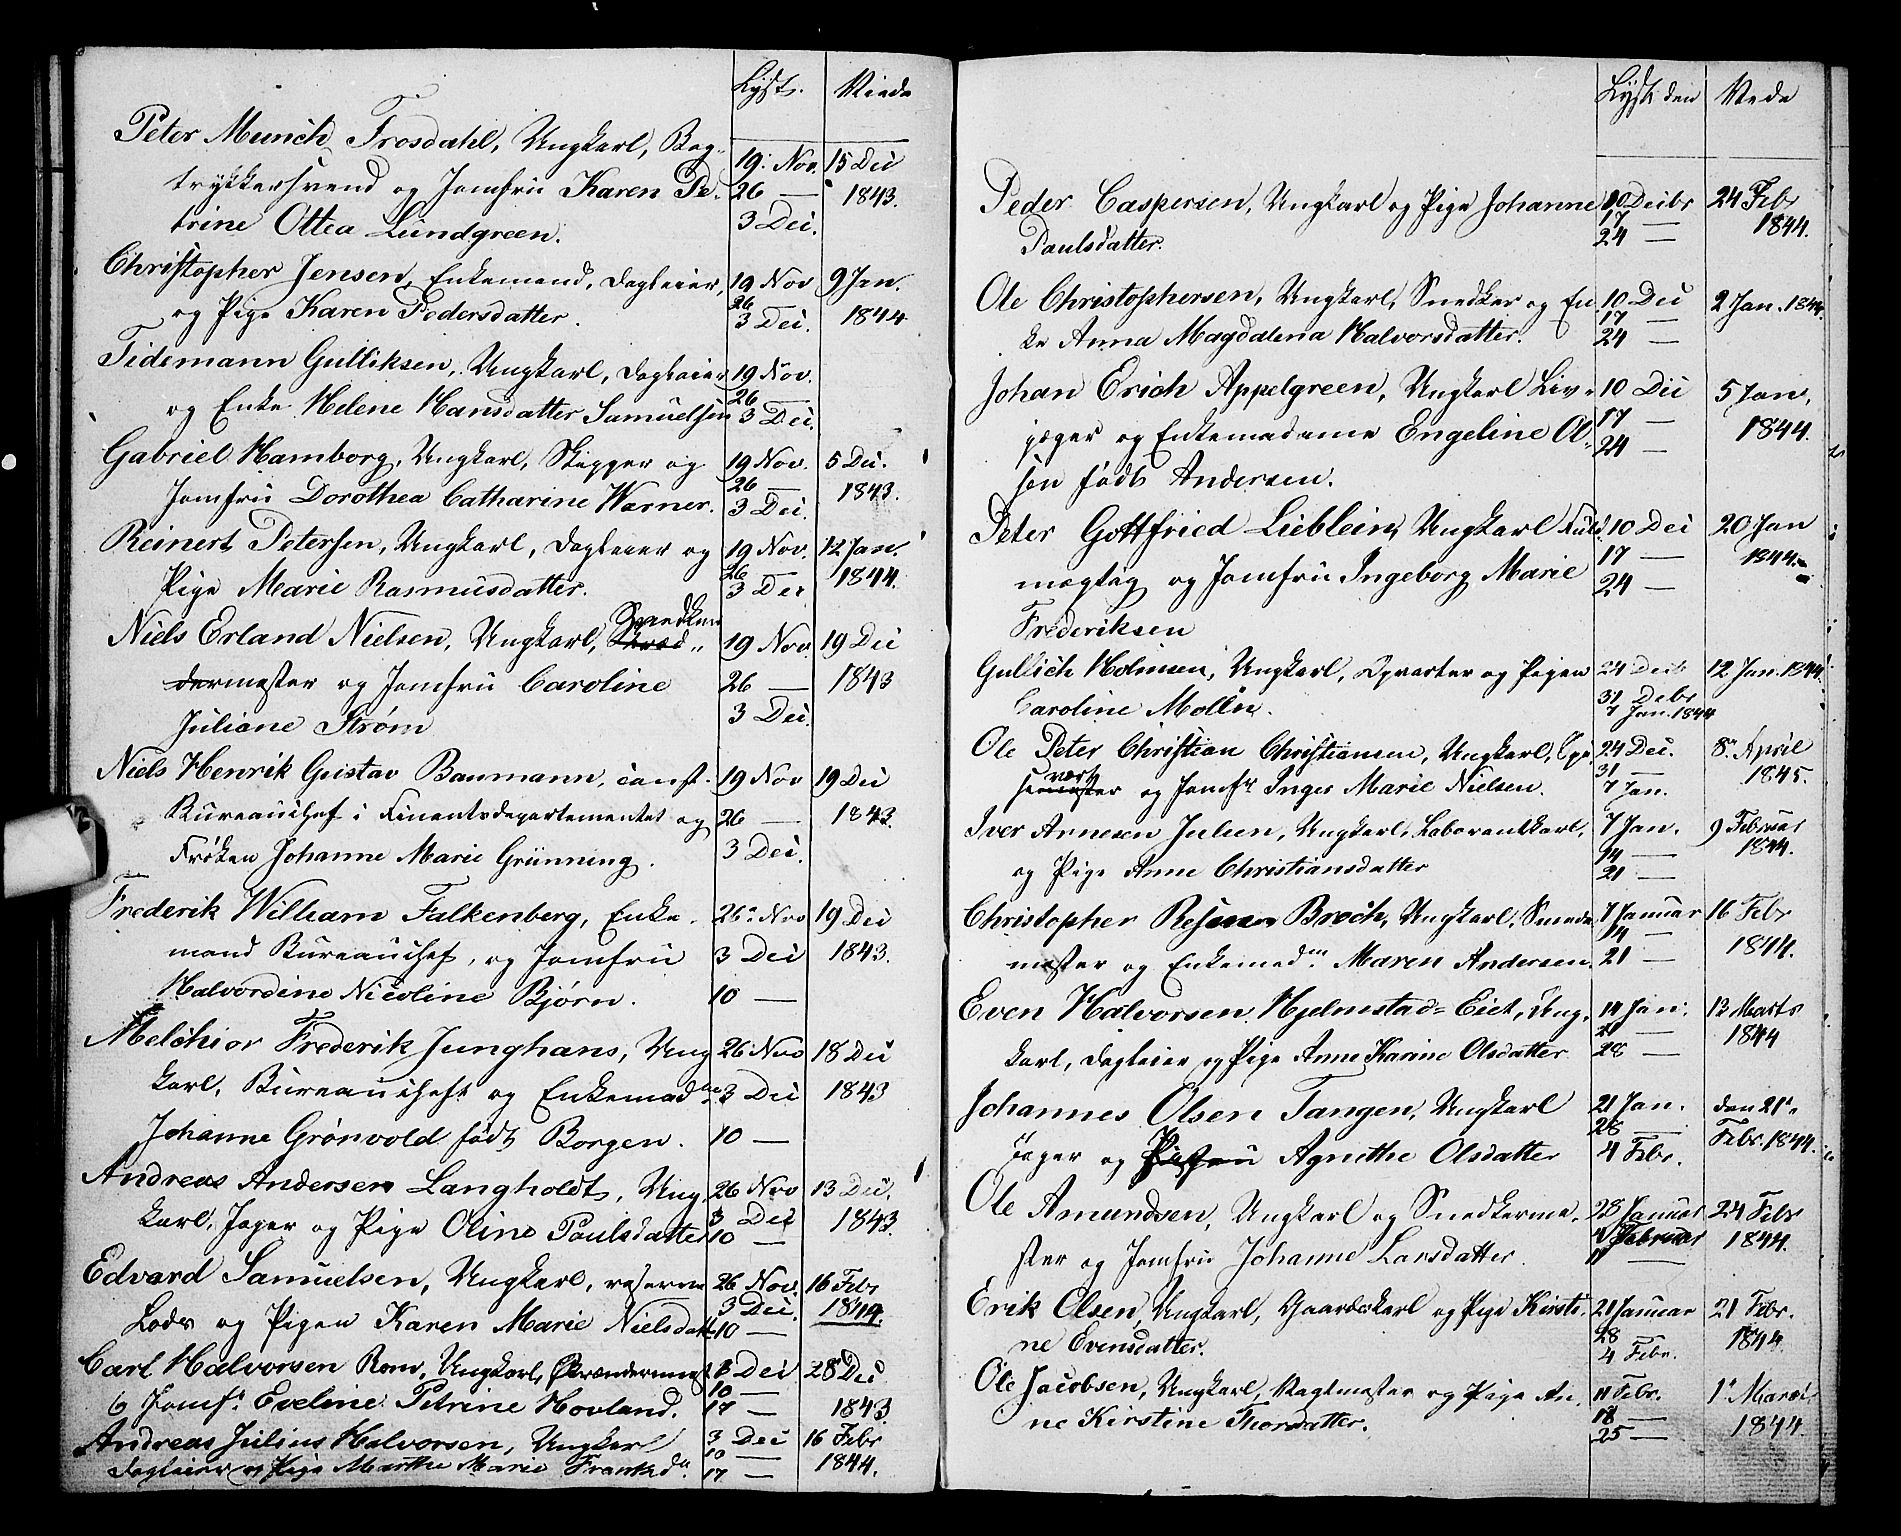 Lyst. Viede
Peter Munch Frosdahl, Ungkarl, Bog-
trykkersvend og Jomfru Karen Pe-
trine Ottea Lundgreen.
19. Nov. 15 Dec
26 — 1843.
3 Dec.
Christopher Jensen, Enkemand, Dagleier,
og Pige Karen Pedersdatter.
19 Nov 9 Jan.
26
3 Dec. 1844
Tidemann Gulliksen, Ungkarl, Dagleier
og Enke Helene Hansdatter Samuelsen
19 Nov.
26 —
3 Dec.
Gabriel Hamborg, Ungkarl, Skipper og
Jomfru Dorothea Catharine Warner.
19 Nov. 5 Dec.
26 — 1843.
3 Dec.
Reinert Petersen, Ungkarl, Dagleier og
Pige Marie Rasmusdatter.
19 Nov. 12 Jan.
26 — 1844.
3 Dec
Niels Erland Nielsen, Ungkarl, Snedker
dermester og Jomfru Caroline
Juliane Strøm
19 Nov. 19 Dec
26 — 1843
3 Dec.
Niels Henrik Gustav Baumann, const.
Bureauchef i Finantsdepartementet og
Frøken Johanne Marie Grünning.
19 Nov 19 Dec
26 — 1843.
3 Dec.
Frederik William Falkenberg, Enke-
mand Bureauchef, og Jomfru
Halvordine Nicoline Bjørn.
26 Nov 19 Dec
3 Dec 1843.
10 —
Melchior Frederik Junghans, Ung
karl, Bureauchef og Enkemadme
Johanne Grønvold født Borgen.
26 Nov 18 Dec
3 Dec 1843
10 —
Andreas Andersen Langholdt, Ung
karl, Jager og Pige Oline Paulsdatter
26 Nov 13 Dec.
3 Dec 1843.
10 —
Edvard Samuelsen, Ungkarl, reserve
Lods og Pigen Karen Marie Nielsdatt
26 Nov. 16 Febr
3 Dec. 1844.
10 —
Carl Halvorsen Rom, Ungkarl,
og Jomfr. Eveline Petrine Hovland.
3 Dec 28 Dec
10 —
17 — 1843.
Andreas Julius Halvorsen, Ungkarl
Dagleier og Pige Marthe Marie Franksd.
3 Dec 16 Febr
10 —
17 — 1844.
Lyst den Viede
Peder Caspersen, Ungkarl og Pige Johanne
Paulsdatter.
10 Decbr 24 Febr
17 — 1844.
24 —
Ole Christophersen, Ungkarl, Snedker og En
ke Anna Magdalena Halvorsdatter.
10 Dec 2 Jan. 1844.
17 —
24 —
Johan Erich Appelgreen, Ungkarl Liv-
jæger og Enkemadame Engeline Ol-
sen født Andersen.
10 Dec 5 Jan.
17 — 1844.
24 —
Peter Gottfried Lieblein, Ungkarl Fuld
mægtig og Jomfru Ingeborg Marie
Frederiksen
10 Dec 20 Jan
17 — 1844.
24 —
Gullich Holmsen, Ungkarl, Opvarter og Pigen
Caroline Molln.
24 Decb 12 Jan. 1844.
31 Debr
7 Jan. 1844
Ole Peter Christian Christiansen, Ungkarl, Spi
sevært og Jomfr Inger Marie Nielsen.
24 Dec. 8 April
31 — 1845.
7 Jan.
Iver Arnesen Julsen, Ungkarl, Laborantkarl,
og Pige Anne Christiansdatter
7 Jan. 9 Februar
14 — 1844.
21 —
Christopher Broch, Ungkarl, Smede
mester og Enkemadm. Maren Andersen.
7 Januar 16 Febr
14 —
21 — 1844.
Even Halvorsen Hjelmstad-Eiet, Ung-
karl, Dagleier og Pige Anne Karine Olsdatter
14 Jan. 13 Marts
21 — 1844
28 —
Johannes Olsen Tangen, Ungkarl
Jager og Agnethe Olsdatter
21 Jan. den 21
28 — Febr. 1844.
4 Febr.
Ole Amundsen, Ungkarl og Snedkerme-
ster og Jomfru Johanne Larsdatter.
28 Januar 24 Febr
4 Februar 1844.
11 —
Erik Olsen, Ungkarl, Gaardskarl og Pige Kirsti-
ne Evensdatter.
21 Januar 21 Febr.
28 1844.
4 Febr.
Ole Jacobsen, Ungkarl, Vagtmester og Pige An-
ne Kirstine Thordatter.
11 Febr. 1 Marts
18 —
25 — 1844.